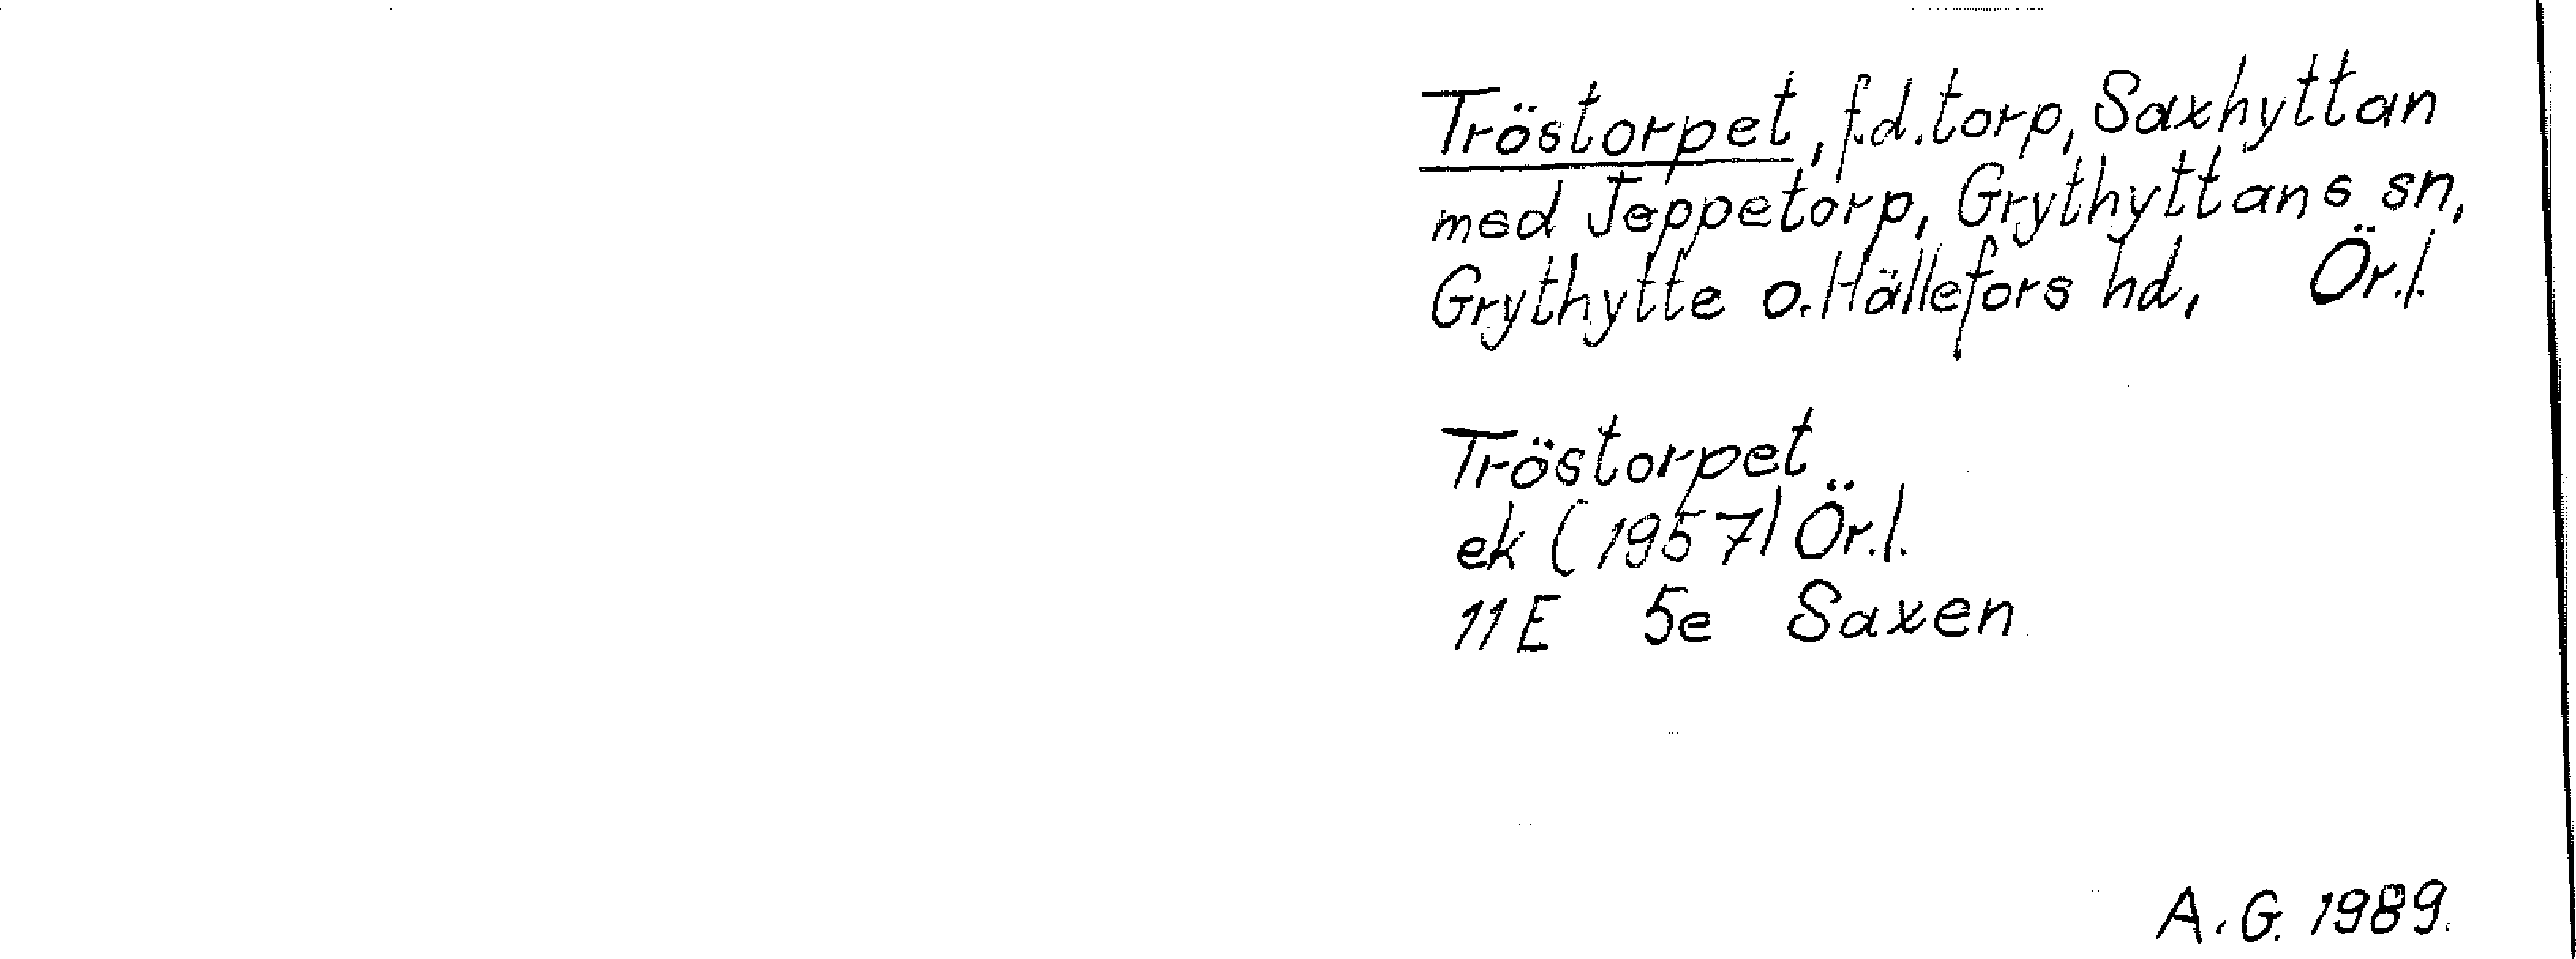 Tröstorpet, f.d. torp, Saxhyttan
med Jeppetorp, Grythyttans sn,
Grythytte o. Hällefors hd, Ör.l.
Tröstorpet
ek (1957) Ör.l.
11E 5e Saxen
A.G. 1989.